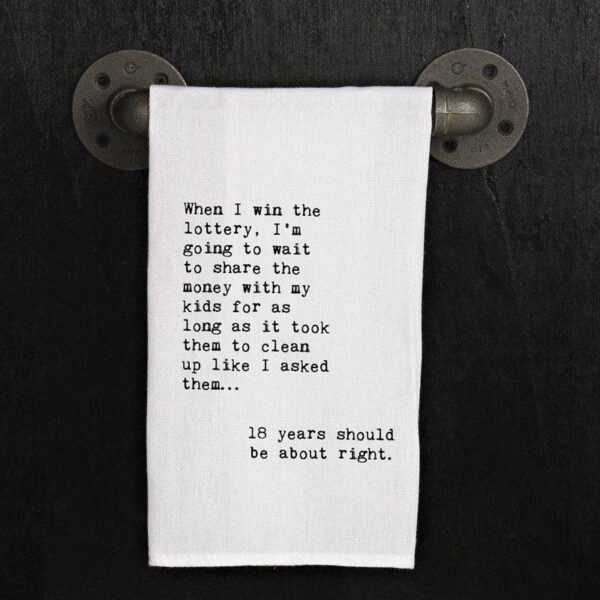 When I win the
lottery, I'm
going to wait
to share the
money with my
kids for as
long as it took
them to clean
up like I asked
them...
18 years should
be about right.